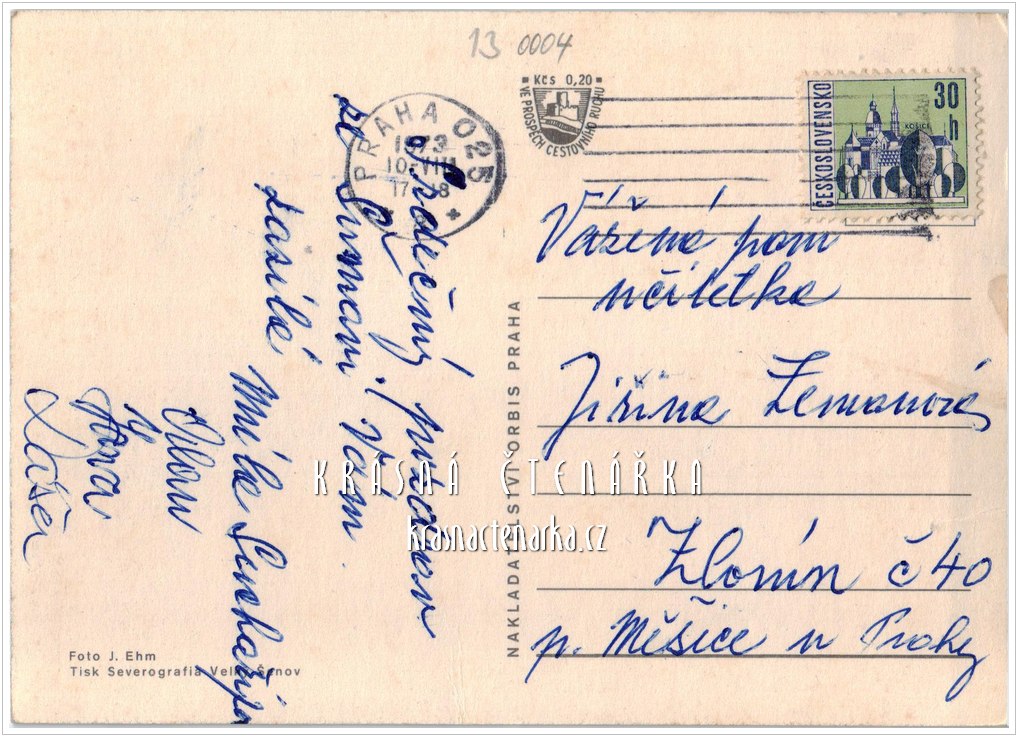 13 0004
Kčs 0,20
VE PROSPĚCH CESTOVNÍHO RUCHU
PRAHA 025
1973
10-VIII
17
ČESKOSLOVENSKO
30 h
KOŠICE
Srdečný pozdrav
ze Vám
zasílá Míla
Hana
Vážená paní
učitelka
Jiřina Zemanová
Zlonín č 40
p. Měšice u Prahy
NAKLADATELSTVÍ ORBIS PRAHA
Foto J. Ehm
Tisk Severografia Velký Šenov
KRÁSNÁ ČTENÁŘKA
krasnactenarka.cz